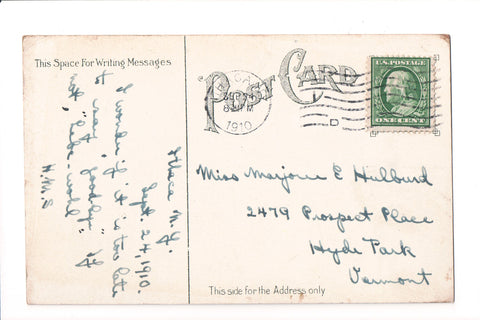 This Space For Writing Messages
POST CARD
1910
U.S. POSTAGE
ONE CENT
Ithaca N.Y.
Sept. 24, 1910.
I wonder if it is too late
to say "goodbye." If
not, "lebe wohl."
H.M.S
Miss Marjorie E Hulburd
2479 Prospect Place
Hyde Park
Vermont
This side for the Address only